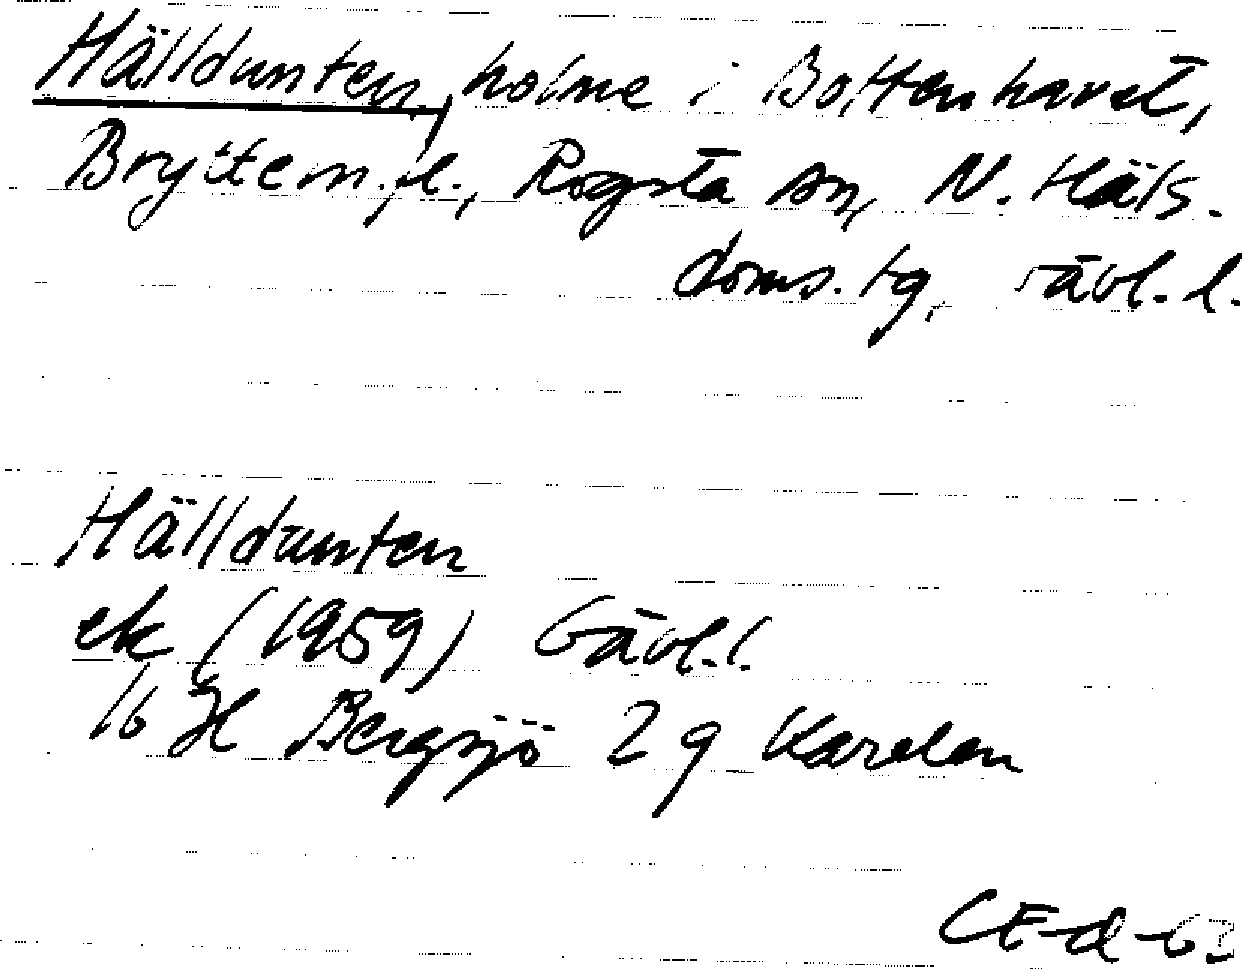 Hälldunten, holme i Bottenhavet,
Bryttem.fl., Rogsta sn, N. Häls.
doms. tg, Gävl. l.
Hälldunten
ek (1959) Gävl.l.
16 H Bergsjö 2 g Karelen
CE-d-63